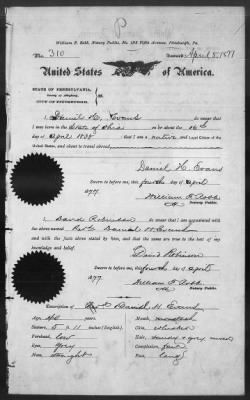 P
William F. Robb, Notary Public, No. 155 Fifth Avenue, Pittsburgh, Pa.
No. 310 Issued April 5, 1877
United States of America.
STATE OF PENNSYLVANIA,
County of Allegheny,
CITY OF PITTSBURGH. ss.
I, Daniel H. Evans do swear that
I was born in the State of Ohio on or about the 16th
day of April 1838 that I am a native and Loyal Citizen of the
United States, and about to travel abroad
Daniel H. Evans
Sworn to before me, this fourth day of April
1877
William F. Robb
Notary Public.
I, David Robinson do swear that I am acquainted with the
above-named Rev. Daniel H. Evans and
with the facts above stated by him, and that the same are true to the best of my
knowledge and belief.
David Robinson
Sworn to before me, this fourth day of April
1877
William F. Robb
Notary Public.
Description of Rev. Daniel H. Evans
Age, years. Mouth,
Stature, 5 ft 11 inches (English). Chin, whiskers
Forehead, low Hair,
Eyes, grey Complexion, fair
Nose, straight Face, long